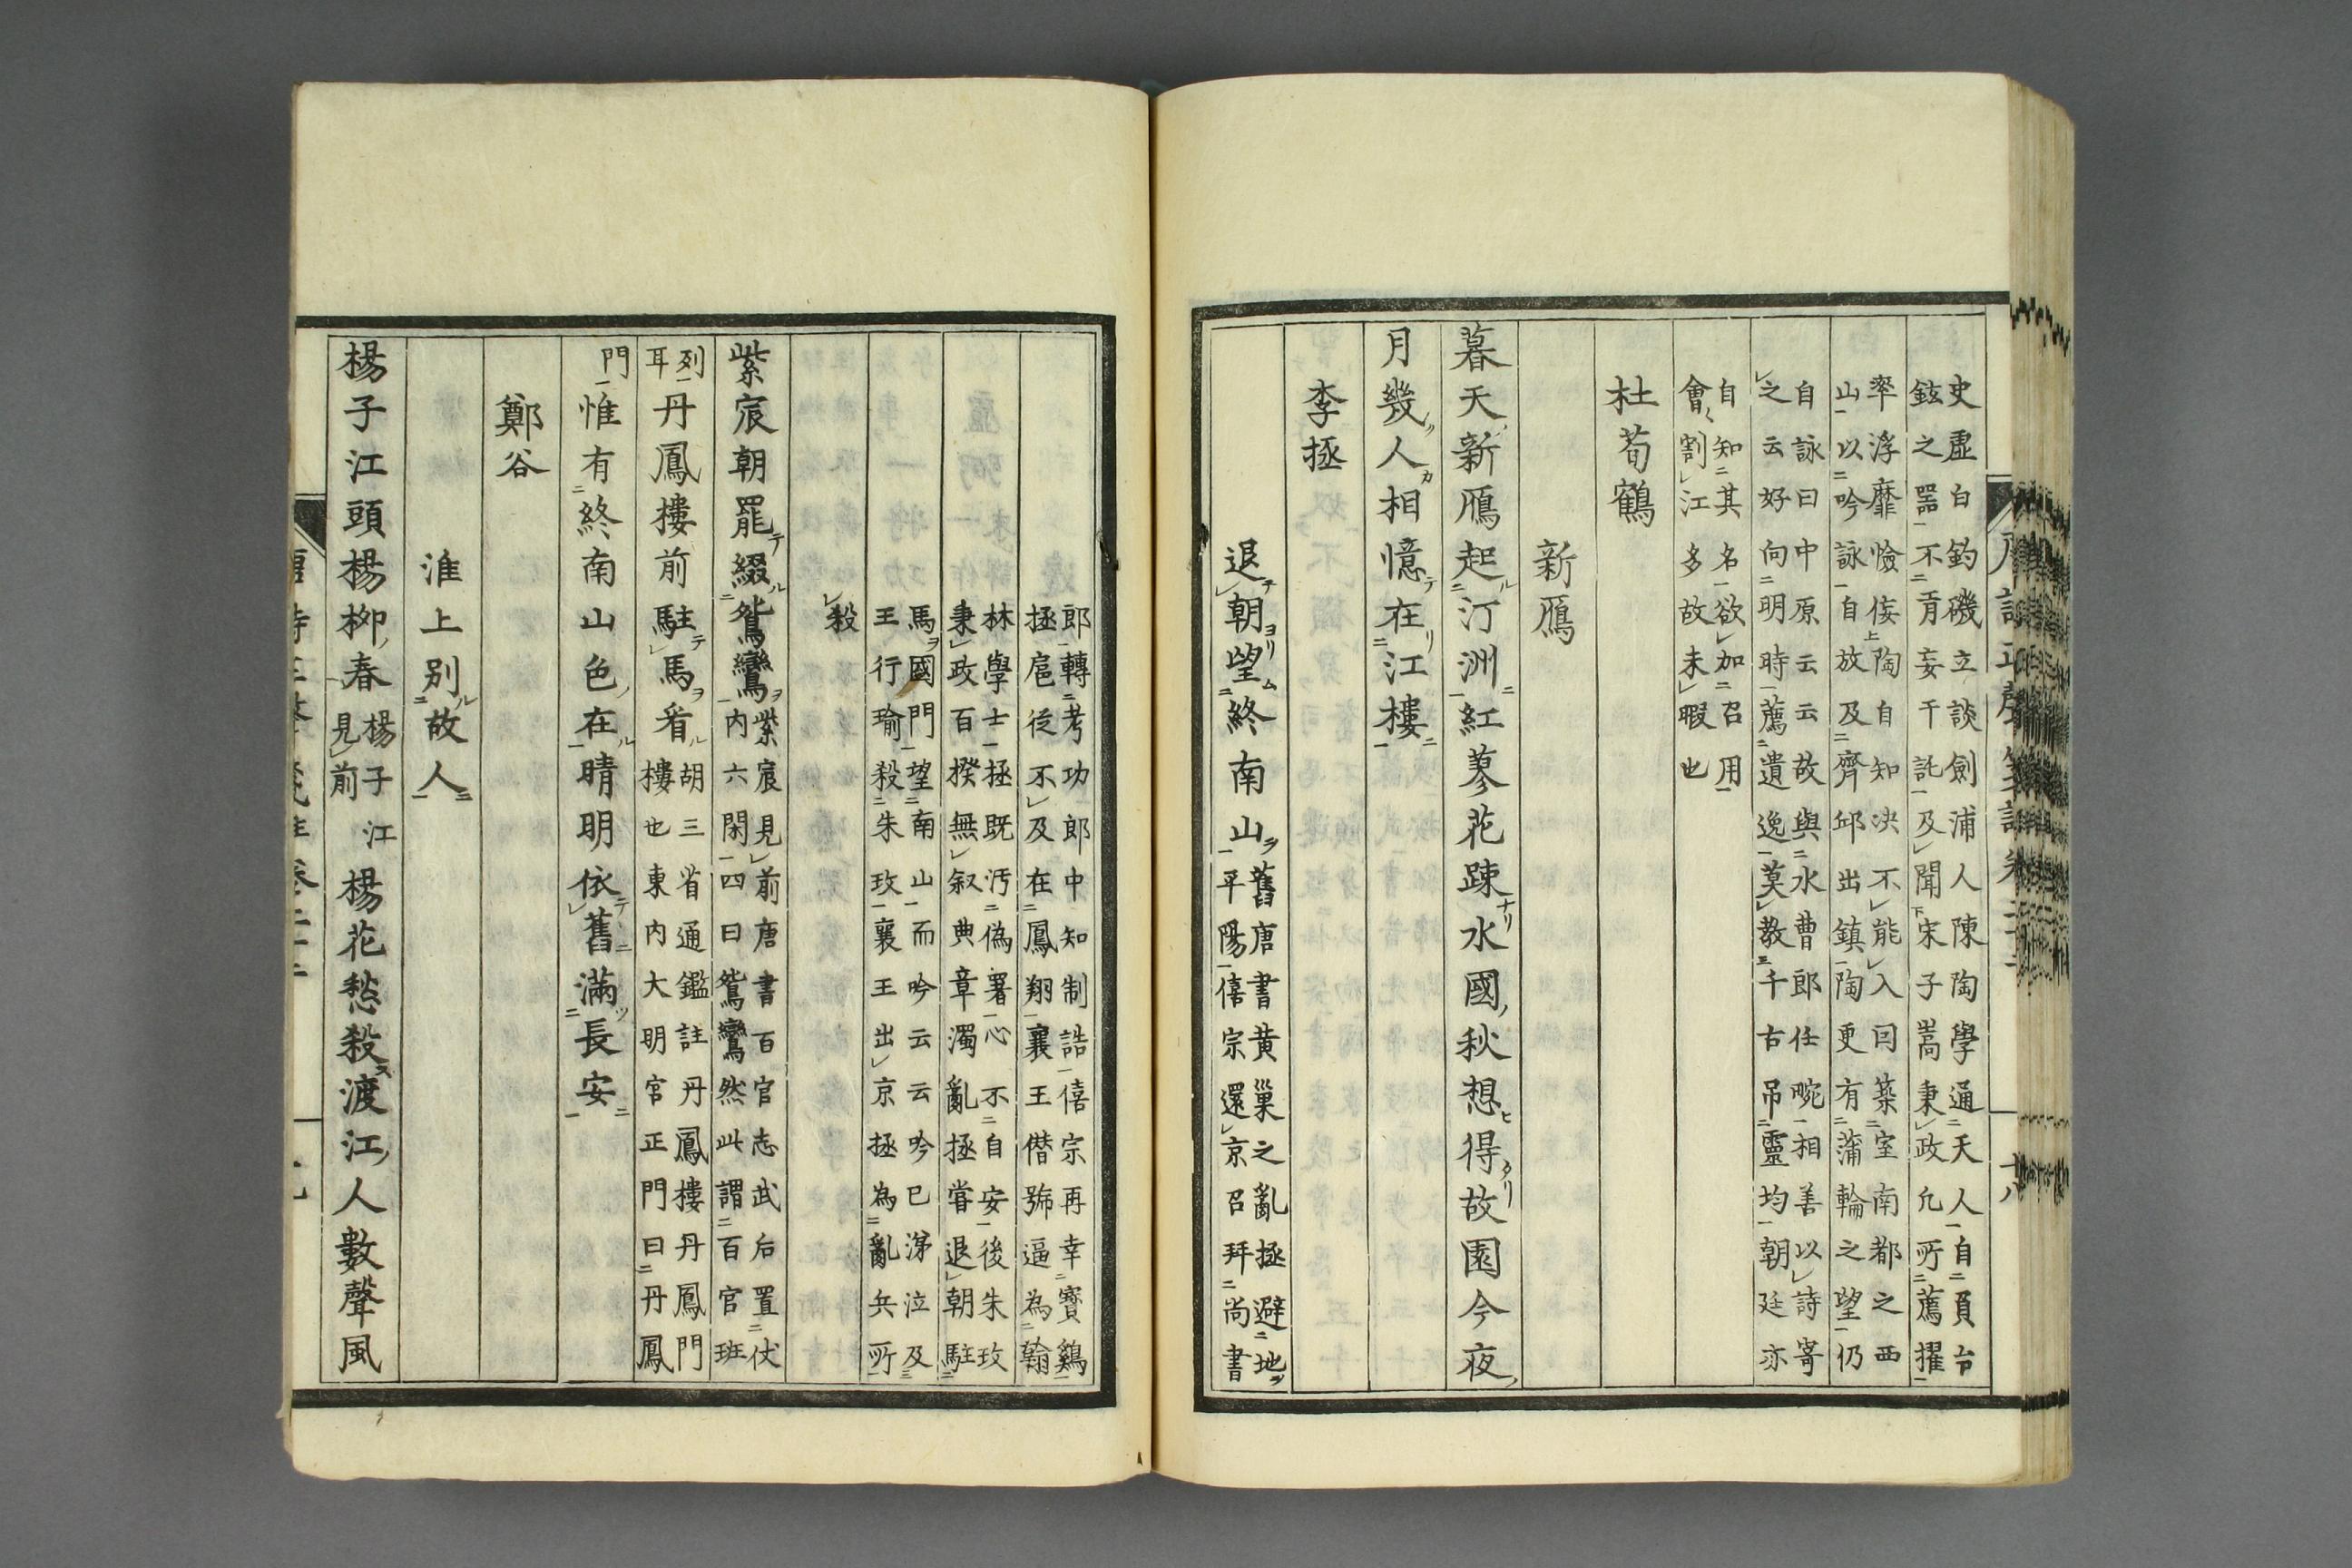 史虛白釣磯立談劍浦人陳陶學通天人自負台
鉉之器不肎妄干託及聞宋子嵩秉政凢所薦擢
率浮靡憸佞陶自知决不能入曰築室南都之西
山以吟詠自放及齊邱出鎮陶更有蒲輪之望仍
自詠曰中原云云故與水曹郎任畹相善以詩寄
之云好向明時薦遺逸莫教千古吊靈均朝廷亦
自知其名欲加召用
會割江多故未暇也
杜荀鶴
新鴈
暮天新鴈起汀洲紅蓼花踈水國秋想得故園今夜
月幾人相憶在江樓
李拯
退朝望終南山
舊唐書黄巢之亂拯避地
平陽僖宗還京召拜尚書
郎轉考功郎中知制誥僖宗再幸寶鷄
拯扈從不及在鳳翔襄王僣號逼為翰
林學士拯既汚偽署心不自安後朱玫
秉政百揆無叙典章濁亂拯甞退朝駐
馬國門望南山而吟云云吟已涕泣及
王行瑜殺朱玫襄王出京拯為亂兵所
殺
紫宸朝罷綴鴛鸞
紫宸見前唐書百官志武后置仗
内六閑四曰鴛鸞然此謂百官班
列
耳
丹鳳樓前駐馬看
胡三省通鑑註丹鳳樓丹鳳門
樓也東内大明宫正門曰丹鳳
門
惟有終南山色在晴明依舊滿長安
鄭谷
淮上别故人
楊子江頭楊柳春
楊子江
見前
楊花愁殺渡江人數聲風